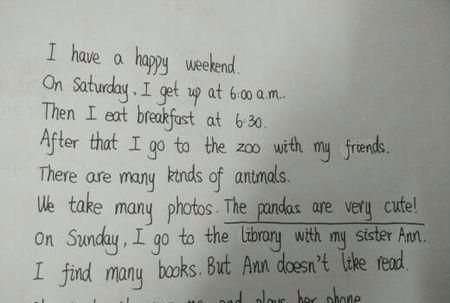 I have a happy weekend.
On Saturday, I get up at 6:00 a.m..
Then I eat breakfast at 6:30.
After that I go to the zoo with my friends.
There are many kinds of animals.
We take many photos. The pandas are very cute!
On Sunday, I go to the library with my sister Ann.
I find many books. But Ann doesn't like read.
and plays her phone